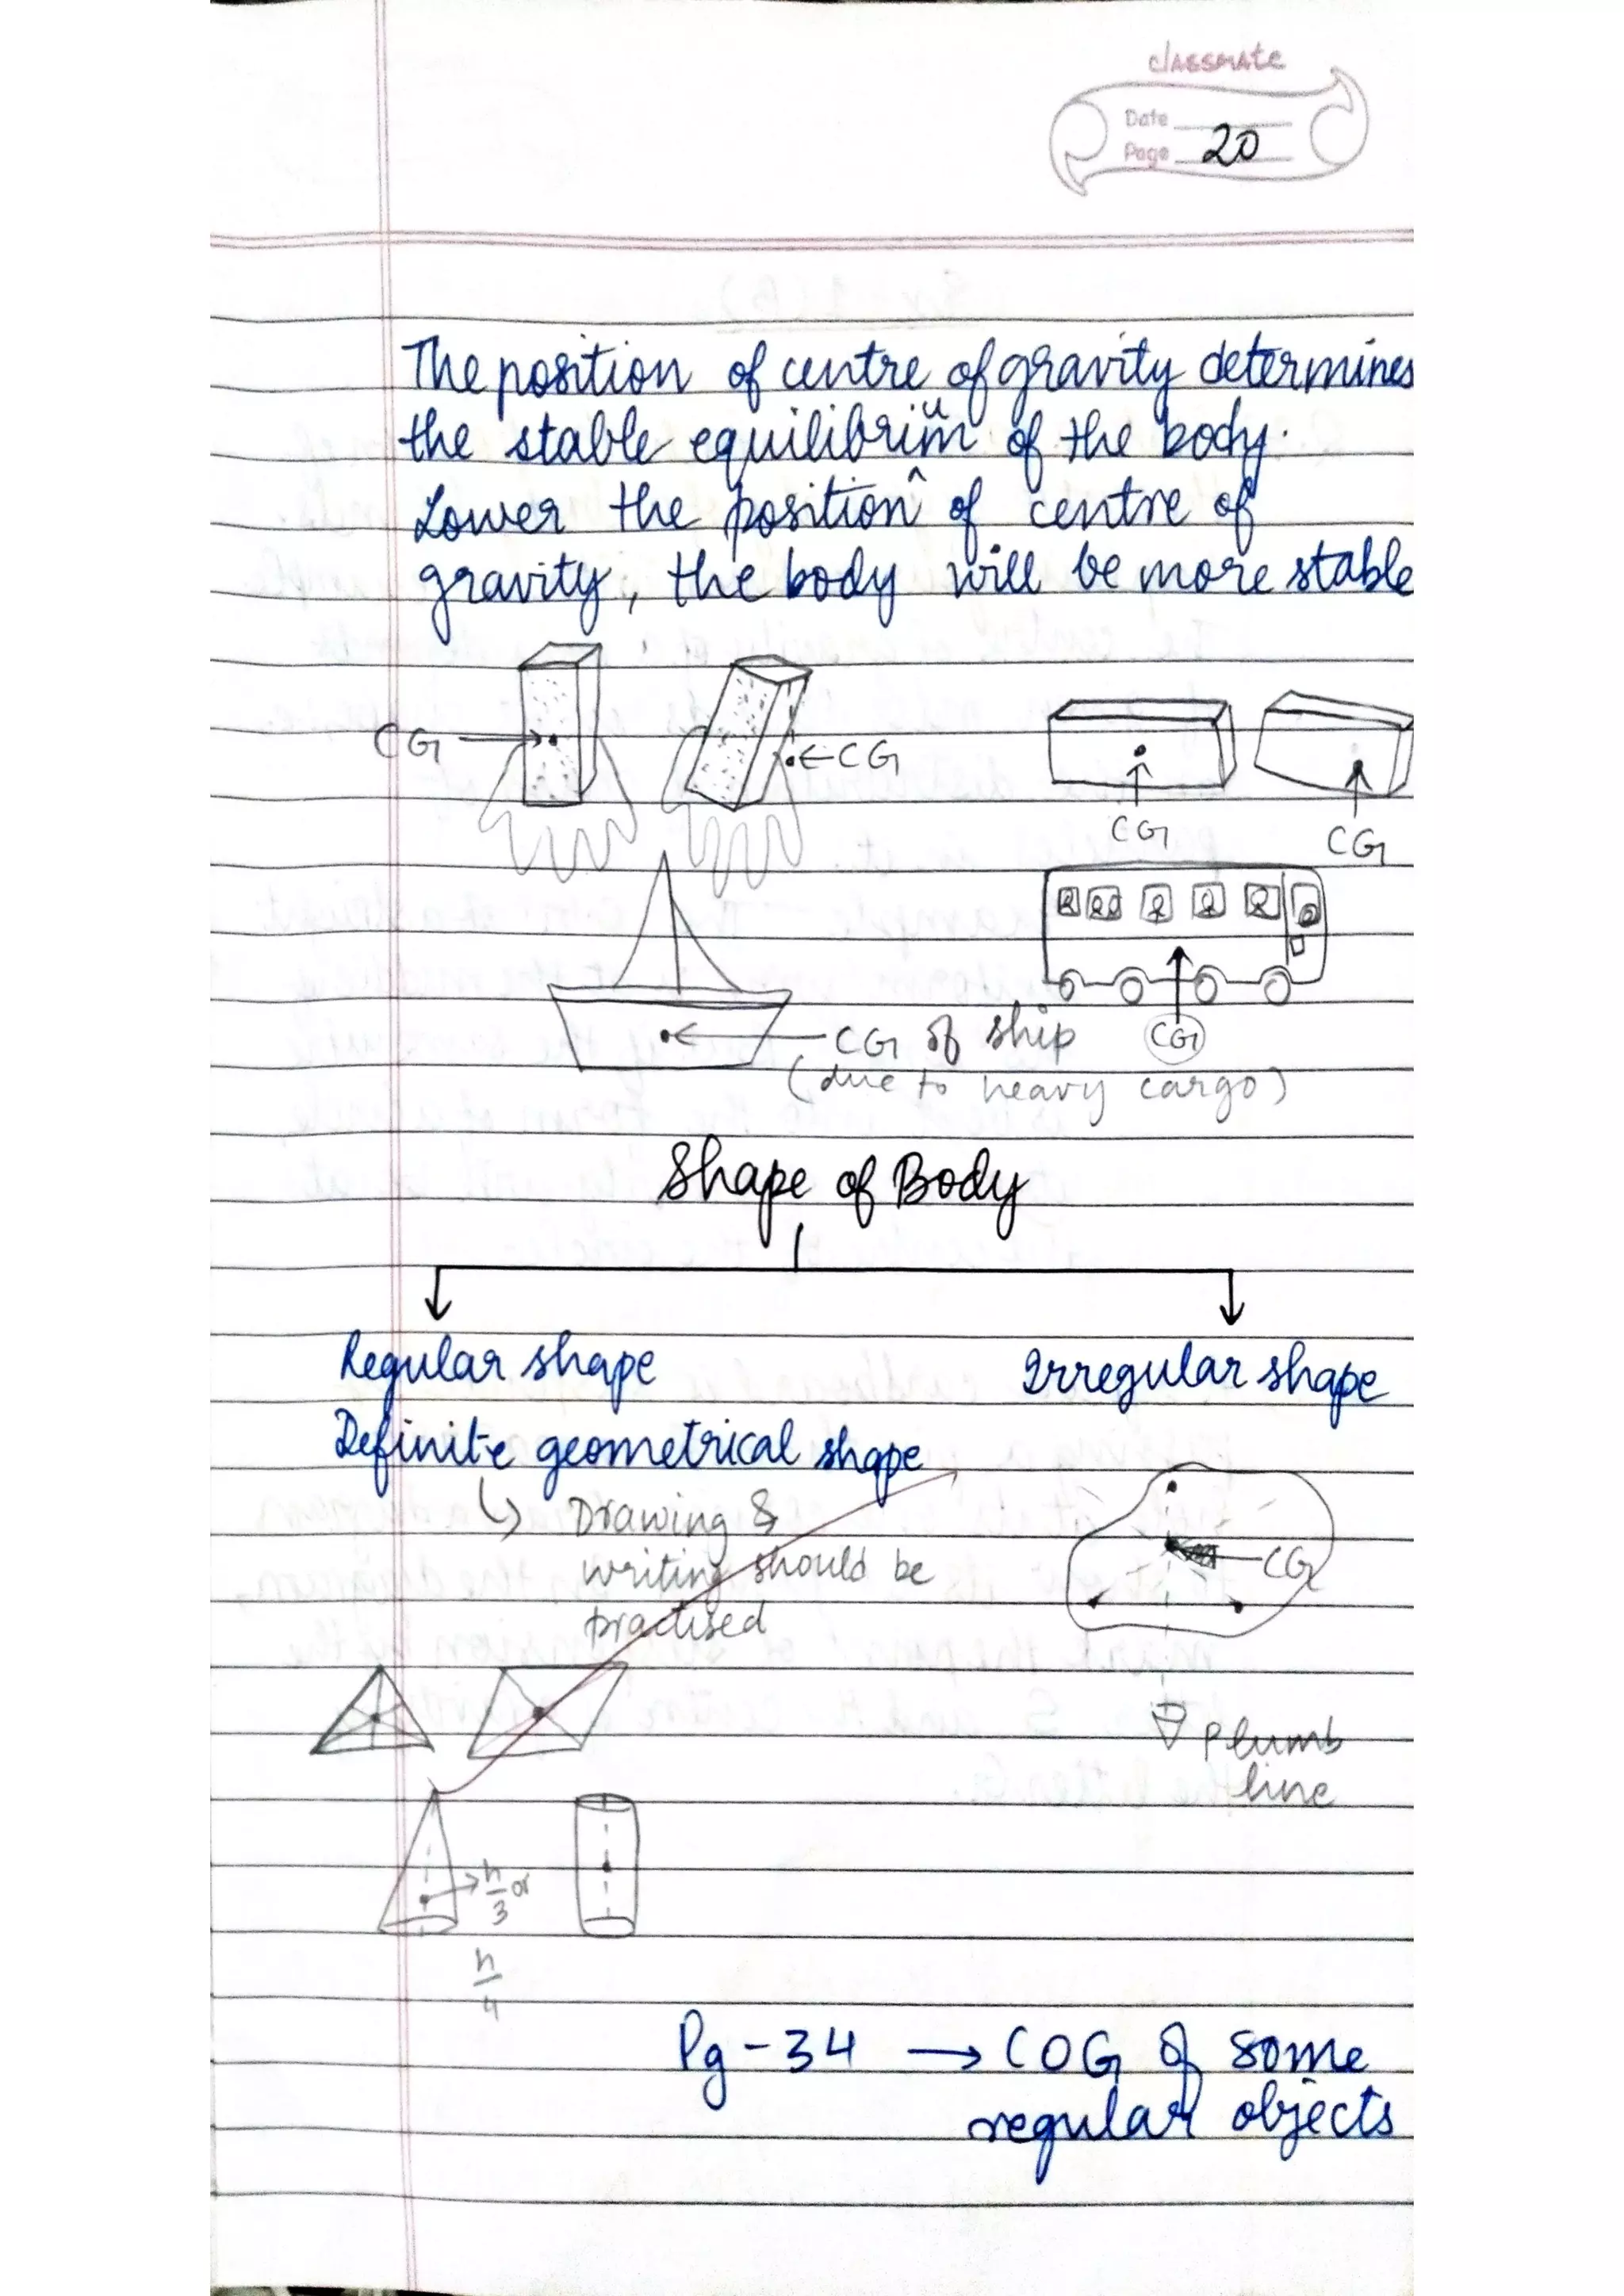 classmate
Date
Page 20
The position of centre of gravity determines
the stable equilibrium of the body.
Lower the position of centre of
gravity, the body will be more stable
CG
CG
CG
CG
CG of ship
CG
(due to heavy cargo)
Shape of Body
Regular shape
Irregular shape
Definite geometrical shape
Drawing &
writing should be
practised
CG
Plumb
line
h/3 or
h/4
Pg-34 → COG of some
regular objects